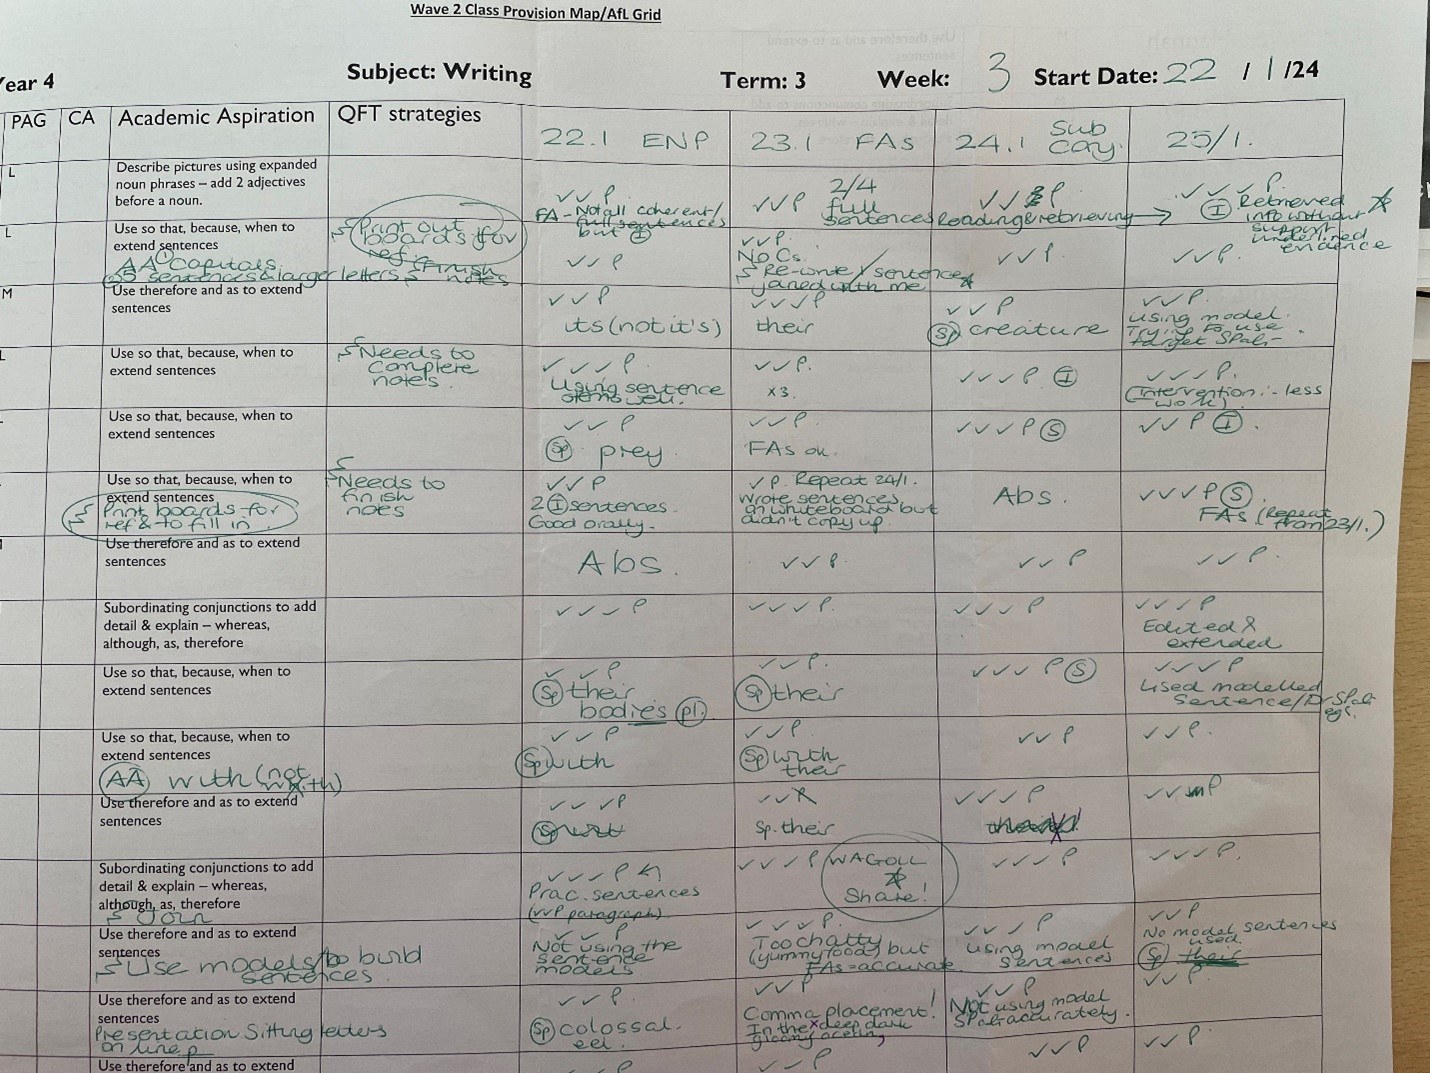 Wave 2 Class Provision Map/AfL Grid
Year 4
Subject: Writing
Term: 3
Week: 3
Start Date: 22 / 1 /24
PAG
CA
Academic Aspiration
QFT strategies
22.1 ENP
23.1 FAs
24.1 Sub
Conj.
25/1.
L
Describe pictures using expanded
noun phrases – add 2 adjectives
before a noun.
✓✓ P
FA - Not all coherent/
full sentences
but I
✓✓ P 2/4
full
sentences
✓✓ P
Reading & retrieving →
✓✓✓ P.
I Retrieved
info without
support
underlined
evidence
L
Use so that, because, when to
extend sentences
AA Capitals
5 sentences & larger letters
Print out
boards for
ref
Finish
notes
✓✓ P
✓✓ P.
No Cs.
Re-wrote / sentence
joined with me
✓✓ P
✓✓ P.
M
Use therefore and as to extend
sentences
✓✓ P
its (not it's)
✓✓✓ P
their
✓✓ P
Sp creature
✓✓ P.
using model.
Trying to use
target SPaG
L
Use so that, because, when to
extend sentences
Needs to
complete
notes.
✓✓✓ P.
Using sentence
stems well.
✓✓ P.
x3.
✓✓✓ P I
✓✓✓ P.
(Intervention - less
work)
Use so that, because, when to
extend sentences
✓✓ P
Sp prey
✓✓ P.
FAs ok.
✓✓✓ P S
✓✓ P I.
Use so that, because, when to
extend sentences
Print boards for
ref & to fill in
Needs to
finish
notes
✓✓ P
2 I sentences.
Good orally.
✓ P. Repeat 24/1.
Wrote sentences
on whiteboard but
didn't copy up.
Abs.
✓✓✓ P S.
FAs (Repeat
from 23/1.)
Use therefore and as to extend
sentences
Abs.
✓✓ P.
✓✓ P
✓✓ P.
Subordinating conjunctions to add
detail & explain – whereas,
although, as, therefore
✓✓✓ P
✓✓✓ P.
✓✓✓ P
✓✓✓ P
Edited &
extended
Use so that, because, when to
extend sentences
✓✓ P
Sp their
bodies pl.
✓✓ P.
Sp their
✓✓✓ P S
✓✓✓✓ P
Used modelled
sentence/ SPaG
egs.
Use so that, because, when to
extend sentences
AA with (not
with)
✓✓ P
Sp with
✓✓ P
Sp with
their
✓✓ P
✓✓ P.
Use therefore and as to extend
sentences
✓✓ ✓P
Sp
✓✓
Sp. their
✓✓✓ P
✓✓ P
Subordinating conjunctions to add
detail & explain – whereas,
although, as, therefore
Join
✓✓✓ P
Prac. sentences
(✓✓P paragraph)
✓✓✓ P
WAGOLL
Share!
✓✓✓ P
✓✓✓ P.
Use therefore and as to extend
sentences
Use models to build
sentences.
✓✓ P
Not using the
sentence
models
✓✓✓ P.
Too chatty
(yummy food) but
FAs = accurate.
✓✓ P
using model
sentences
✓✓ P
No model sentences
used.
Sp their
Use therefore and as to extend
sentences
Presentation Sitting letters
on line
✓✓ P.
Sp colossal
eel.
✓✓ P
Comma placement!
In the deep dark
gloomy ocean,
✓✓ P
Not using model
SPaG accurately.
✓✓ P
Use therefore and as to extend
✓✓ P
✓✓ P
✓✓ P
✓✓ P